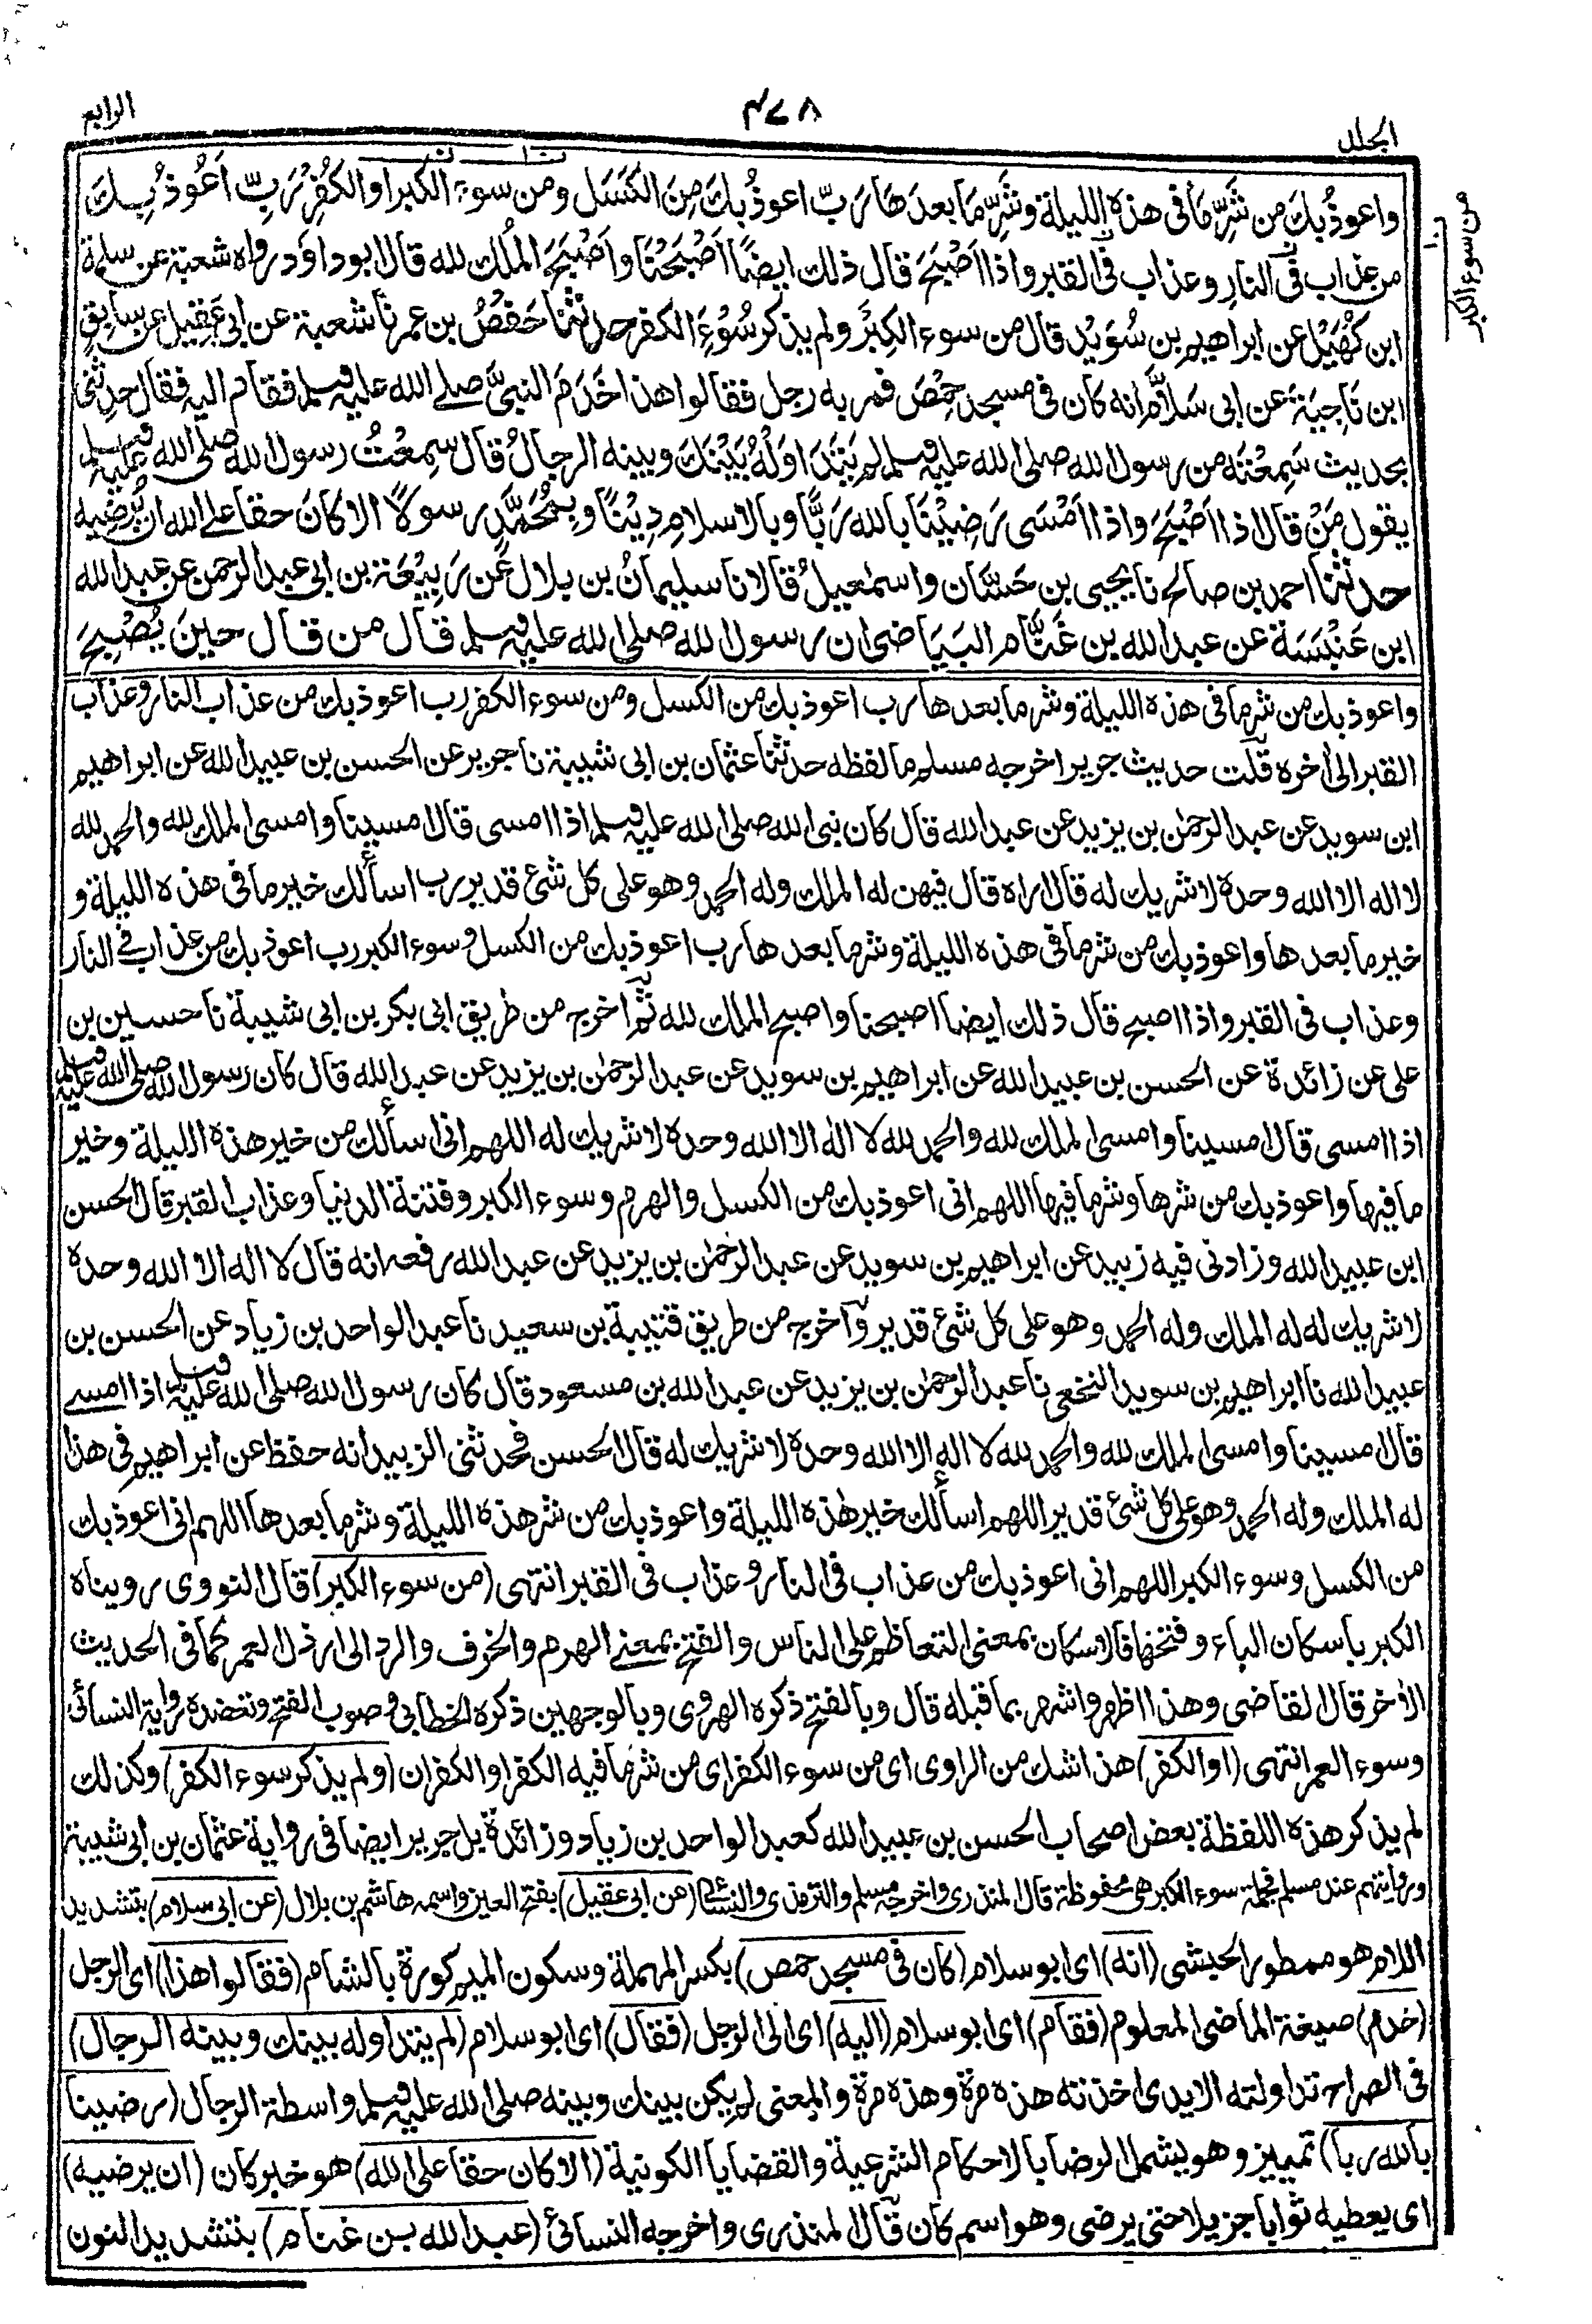 المجلد
٤٧٨
الرابع
من سوء الكبر
واعوذُ بك من شَرِّ مَا فى هذه الليلة وشَرِّ مَا بعدَهَا رَبِّ اعوذُ بك مِنَ الكَسَل ومن سوء الكبر او الكُفْرِ رَبِّ اَعُوذُ بِكَ
من عذاب فى النار وعذاب فى القبر واذا اَصْبَحَ قال ذلك ايضًا اَصْبَحْنَا واَصْبَحَ المُلك لله قال ابوداؤد رواه شعبة عن سلمة
ابن كُهَيْل عن ابراهيم بن سُوَيْد قال من سوء الكِبْر ولم يذكر سُوْءَ الكفر حدثنا حَفْصُ بن عمر نا شعبة عن ابى عَقِيل عن سابق
ابن نَاجِيَة عن ابى سَلَّام انه كان فى مسجد حِمْصَ فمر به رجل فقالوا هذا خَدَمَ النبىَّ صلے الله عليه وسلم فقام اليه فقال حدثنى
بحديث سَمِعْتَه من رسول الله صلى الله عليه وسلم لم يَتَدَاوَلْهُ بَيْنَكَ وبينه الرجالُ قال سمِعْتُ رسول الله صلى الله عليه وسلم
يقول مَنْ قال اذا اَصْبَحَ واذا اَمْسَى رَضِيْنَا بالله رَبًّا وبالاسلام دِيْنًا وبِمُحَمَّدٍ رسولًا الا كانَ حقا على الله ان يُرْضِيه
حدثنا احمد بن صالح نا يحيى بن حَسَّان واسمٰعيلُ قالا نا سليمانُ بن بلال عَن رَبِيْعَة بن ابى عبد الرحمن عن عبد الله
ابن عَنْبَسَة عن عبد الله بن غَنَّام البَيَاضى ان رسول الله صلى الله عليه وسلم قال من قال حينَ يُصْبِحَ
واعوذ بك من شر ما فى هذه الليلة وشر ما بعدها رب اعوذ بك من الكسل ومن سوء الكفر رب اعوذ بك من عذاب النار وعذاب
القبر الى اٰخره قلت حديث جرير اخرجه مسلم ما لفظه حدثنا عثمان بن ابى شيبة نا جرير عن الحسن بن عبيد الله عن ابراهيم
ابن سويد عن عبد الرحمٰن بن يزيد عن عبد الله قال كان نبى الله صلى الله عليه وسلم اذا امسى قال امسينا وامسى الملك لله والحمد لله
لا اله الا الله وحده لا شريك له قال اراه قال فيهن له الملك وله الحمد وهو على كل شئ قدير رب اسألك خير ما فى هذه الليلة و
خير ما بعدها واعوذ بك من شر ما فى هذه الليلة وشر ما بعدها رب اعوذ بك من الكسل وسوء الكبر رب اعوذ بك من عذاب فى النار
وعذاب فى القبر واذا اصبح قال ذلك ايضا اصبحنا واصبح الملك لله ثم اخرج من طريق ابى بكر بن ابى شيبة نا حسين بن
على عن زائدة عن الحسن بن عبيد الله عن ابراهيم بن سويد عن عبد الرحمٰن بن يزيد عن عبد الله قال كان رسول الله صلى الله عليه وسلم
اذا امسى قال امسينا وامسى الملك لله والحمد لله لا اله الا الله وحده لا شريك له اللهم انى اسألك من خير هذه الليلة وخير
ما فيها واعوذ بك من شرها وشر ما فيها اللهم انى اعوذ بك من الكسل والهرم وسوء الكبر وفتنة الدنيا وعذاب القبر قال الحسن
ابن عبيد الله وزادنى فيه زبيد عن ابراهيم بن سويد عن عبد الرحمٰن بن يزيد عن عبد الله رفعه انه قال لا اله الا الله وحده
لا شريك له له الملك وله الحمد وهو على كل شئ قدير واخرج من طريق قتيبة بن سعيد نا عبد الواحد بن زياد عن الحسن بن
عبيد الله نا ابراهيم بن سويد النخعى نا عبد الرحمٰن بن يزيد عن عبد الله بن مسعود قال كان رسول الله صلى الله عليه وسلم اذا امسے
قال امسينا وامسى الملك لله والحمد لله لا اله الا الله وحده لا شريك له قال الحسن فحدثنى الزبيد انه حفظ عن ابراهيم فى هذا
له الملك وله الحمد وهو على كل شئ قدير اللهم اسألك خير هذه الليلة واعوذ بك من شر هذه الليلة وشر ما بعدها اللهم انى اعوذ بك
من الكسل وسوء الكبر اللهم انى اعوذ بك من عذاب فى النار وعذاب فى القبر انتهى (من سوء الكبر) قال النووى رويناه
الكبر باسكان الباء وفتحها فالاسكان بمعنى التعاظم على الناس والفتح بمعنے الهرم والخرف والرد الى ارذل العمر كما فى الحديث
الاٰخر قال القاضى وهذا اظهر واشهر بما قبله قال وبالفتح ذكره الهروى وبالوجهين ذكره الخطابى وصوب الفتح وتعضده رواية النسائى
وسوء العمر انتهى (او الكفر) هذا شك من الراوى اى من سوء الكفر اى من شر ما فيه الكفر او الكفران (ولم يذكر سوء الكفر) وكذلك
لم يذكر هذه اللفظة بعض اصحاب الحسن بن عبيد الله كعبد الواحد بن زياد وزائدة بل جرير ايضا فى رواية عثمان بن ابى شيبة
وروايتهم عند مسلم فجملة سوء الكبر هى محفوظة قال المنذرى واخرجه مسلم والترمذى والنسائى (عن ابى عقيل) بفتح العين واسمه هاشم بن بلال (عن ابى سلام) بتشديد
اللام هو ممطور الحبشى (انه) اى ابو سلام (كان فى مسجد حمص) بكسر المهملة وسكون الميم كورة بالشام (فقالوا هذا) اى الرجل
(خدم) صيغة الماضى المعلوم (فقام) اى ابو سلام (اليه) اى الى الرجل (فقال) اى ابو سلام (لم يتداوله بينك وبينه الرجال)
فى الصراح تداولته الايدى اخذته هذه مرة وهذه مرة والمعنى لم يكن بينك وبينه صلى الله عليه وسلم واسطة الرجال (رضينا
بالله ربا) تمييز وهو يشمل الرضا بالاحكام الشرعية والقضايا الكونية (الا كان حقا على الله) هو خبر كان (ان يرضيه)
اى يعطيه ثوابا جزيلا حتى يرضى وهو اسم كان قال المنذرى واخرجه النسائى (عبد الله بن غنام) بتشديد النون